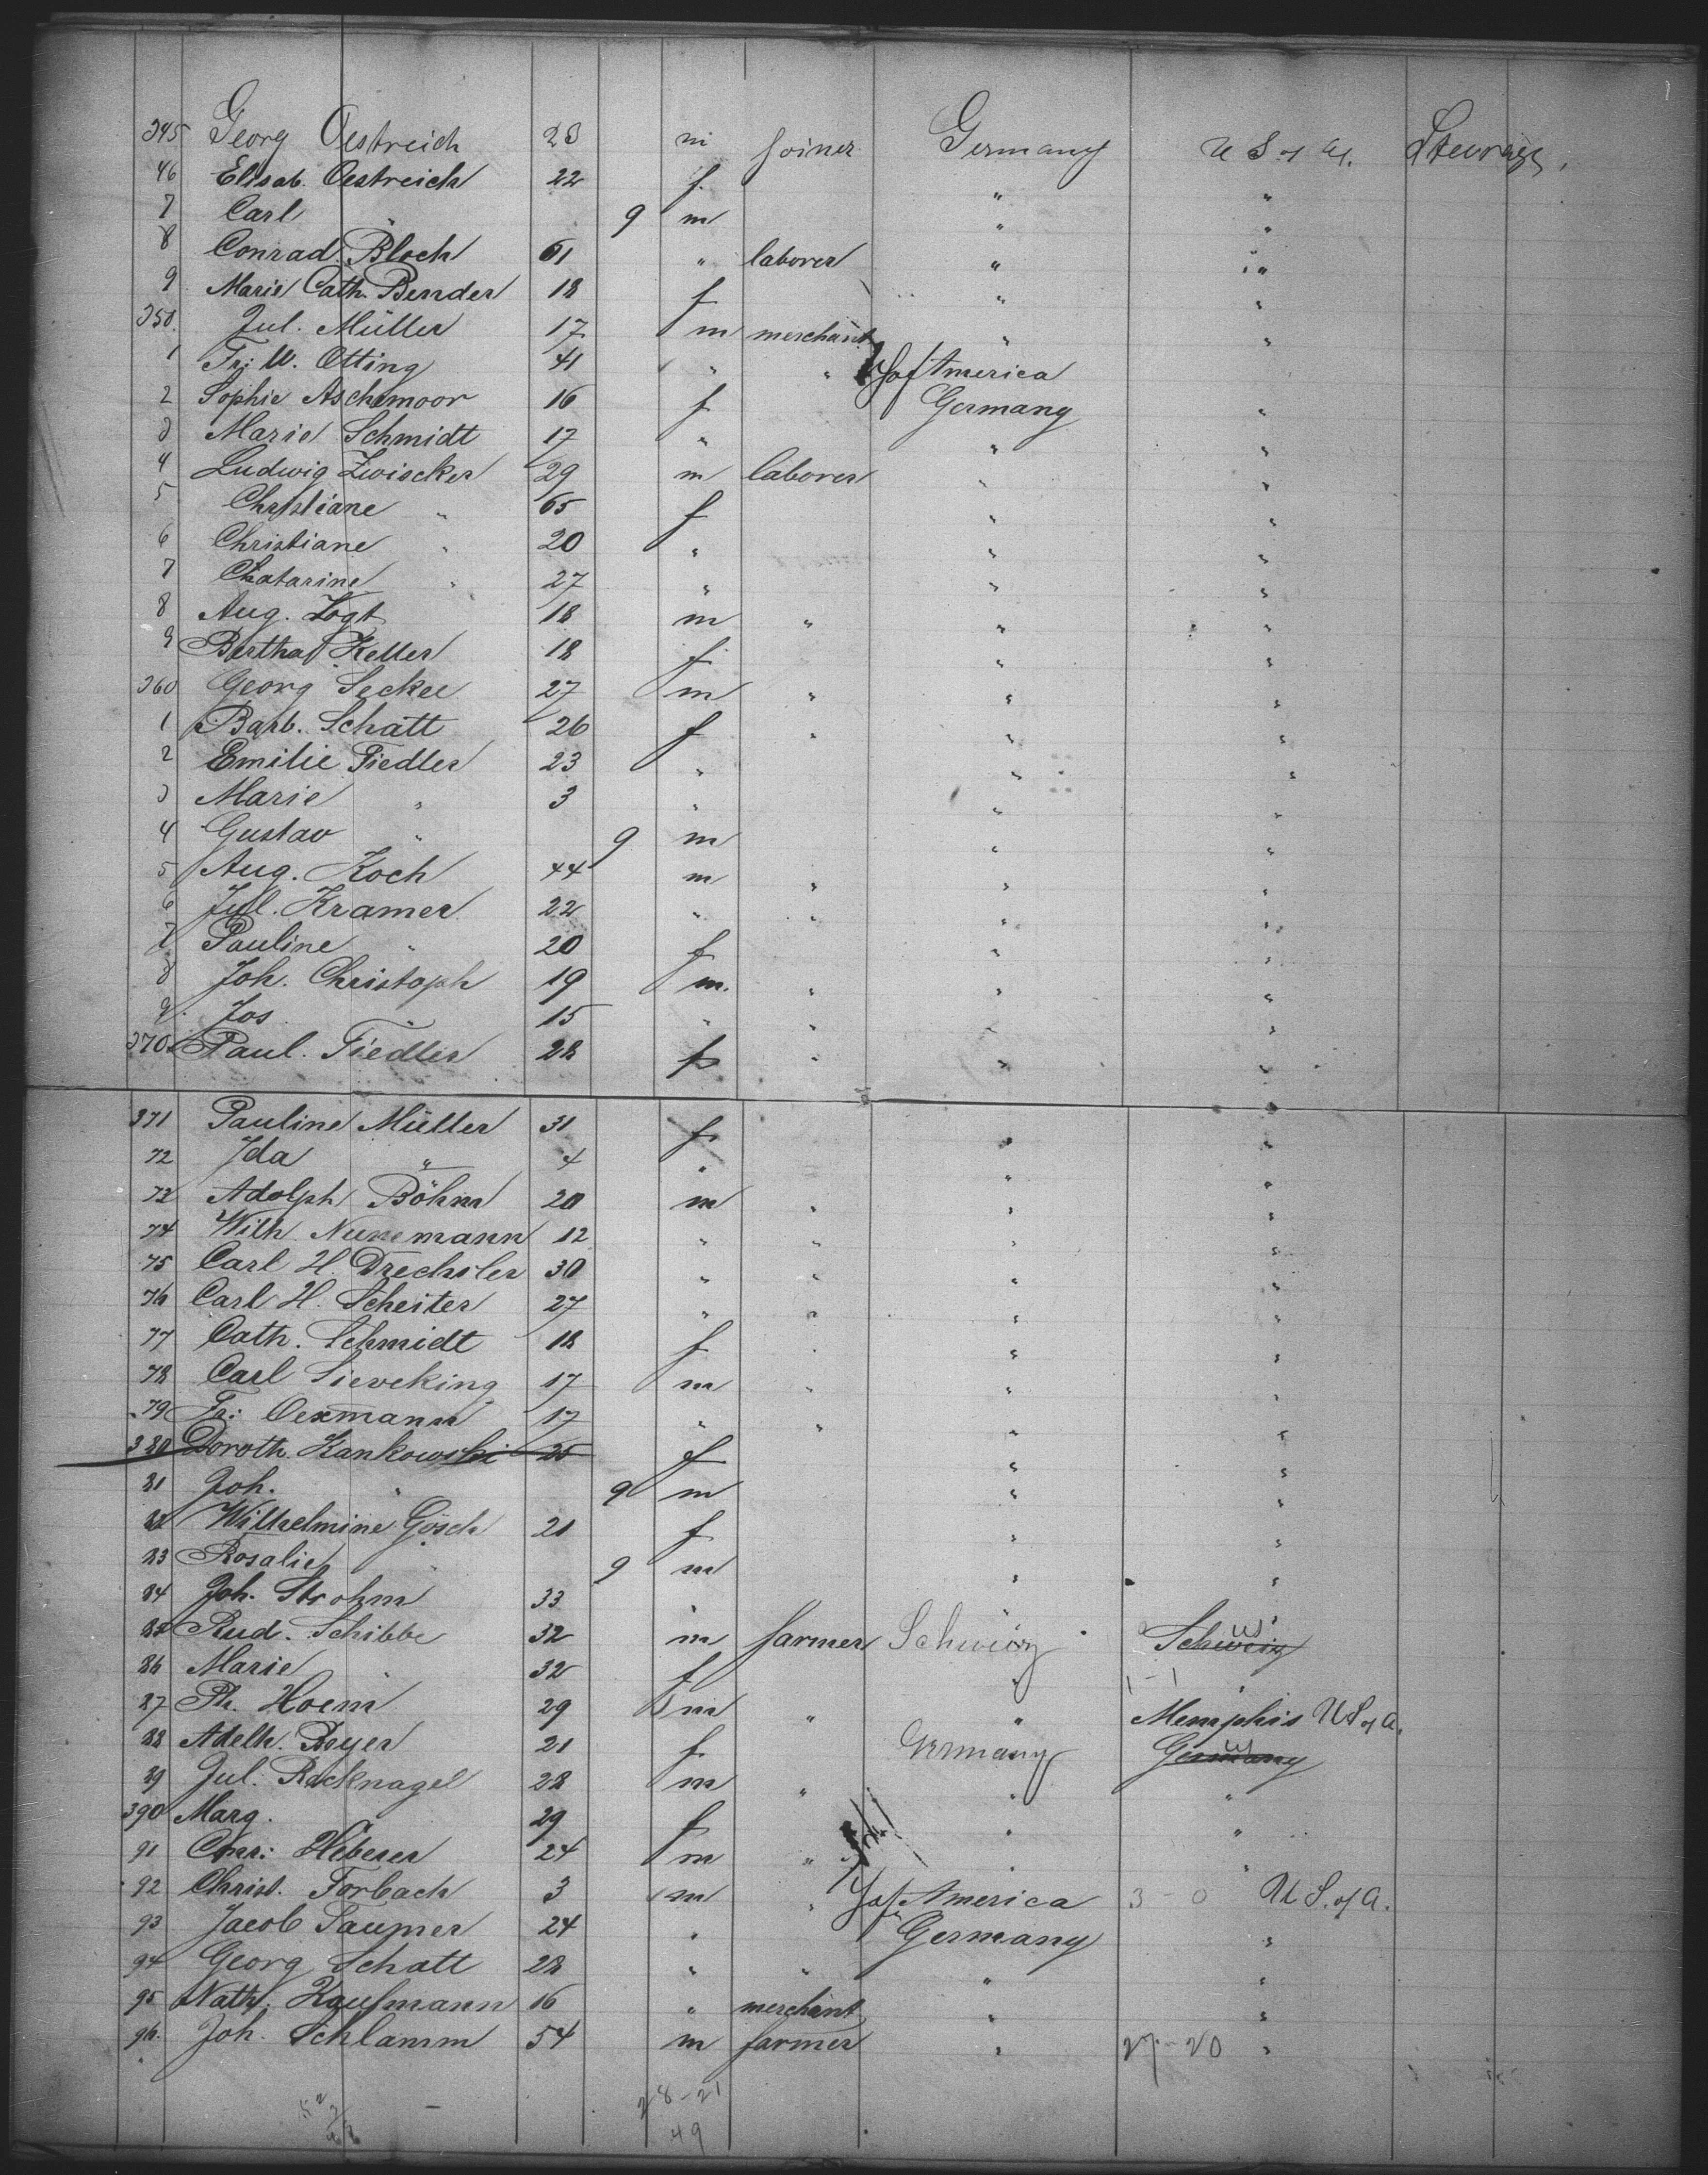 345 Georg Oestreich 23 m joiner Germany U S of A. Steerage.
46 Elisab. Oestreich 22 f. " "
7 Carl " 9 m " "
8 Conrad Bloch 61 " laborer " "
9 Marie Cath. Bender 18 f " "
350. Jul. Müller 17 m merchant " "
1 Fr: W. Otting 41 " " U S of America
2 Sophie Aschemoor 16 f Germany "
3 Marie Schmidt 17 " " "
4 Ludwig Zwiscker 29 m laborer " "
5 Christiane " 65 f " "
6 Christiane " 20 " " "
7 Chatarine " 27 " " "
8 Aug. Vogt 18 m " " "
9 Bertha Keller 18 f " "
360 Georg Seckel 27 m " " "
1 Barb. Schatt 26 f " " "
2 Emilie Fiedler 23 " " "
3 Marie " 3 " " "
4 Gustav " 9 m " "
5 Aug. Koch 44 m " " "
6 Jul. Kramer 22 " " " "
7 Pauline " 20 f " "
8 Joh. Christoph 19 m. " " "
9. Jos. " 15 " " " "
370. Paul. Fiedler 28 f " " "
371 Pauline Müller 31 f " "
72 Ida " 4 " " "
73 Adolph Böhm 20 m " " "
74 Wilh. Nunemann 12 " " " "
75 Carl H. Drechsler 30 " " " "
76 Carl H. Scheiter 27 " " " "
77 Cath. Schmidt 18 f " " "
78 Carl Sieveking 17 m " " "
79 Fr: Oexmann 17 " " " "
380 Doroth. Kankowski 25 f " "
81 Joh. " 9 m " "
82 Wilhelmine Gösch 21 f " "
83 Rosalie " 9 m " "
84 Joh. Strohm 33
85 Rud. Schibbe 32 m farmer Schweiz Schweiz US
86 Marie " 32 f " "
87 Ph. Hoem 29 m " " Memphis U S of A.
88 Adelh. Beyer 21 f Germany Germany US
89 Jul. Recknagel 28 m " " "
390 Marg. " 29 f " "
91 Conr: Heberer 24 m " " "
92 Christ. Forbach 3 m " U S of America 3 - 0 U S. of A.
93 Jacob Saumer 24 " Germany "
94 Georg Schatt 28 " " " "
95 Nath. Kaufmann 16 " merchant " "
96. Joh. Schlamm 54 m farmer " 27 - 20 "
28 - 21
49